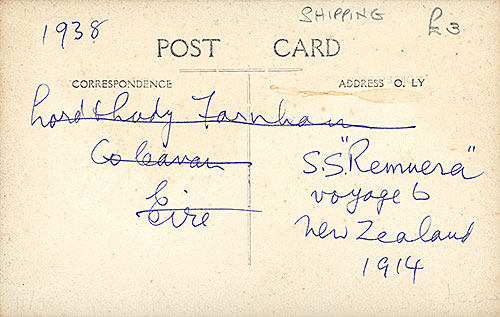 SHIPPING £3
1938
POST CARD
CORRESPONDENCE
ADDRESS O. LY
Lord & Lady Farnham
Co Cavan
Eire
S.S. "Remuera"
voyage to
New Zealand
1914